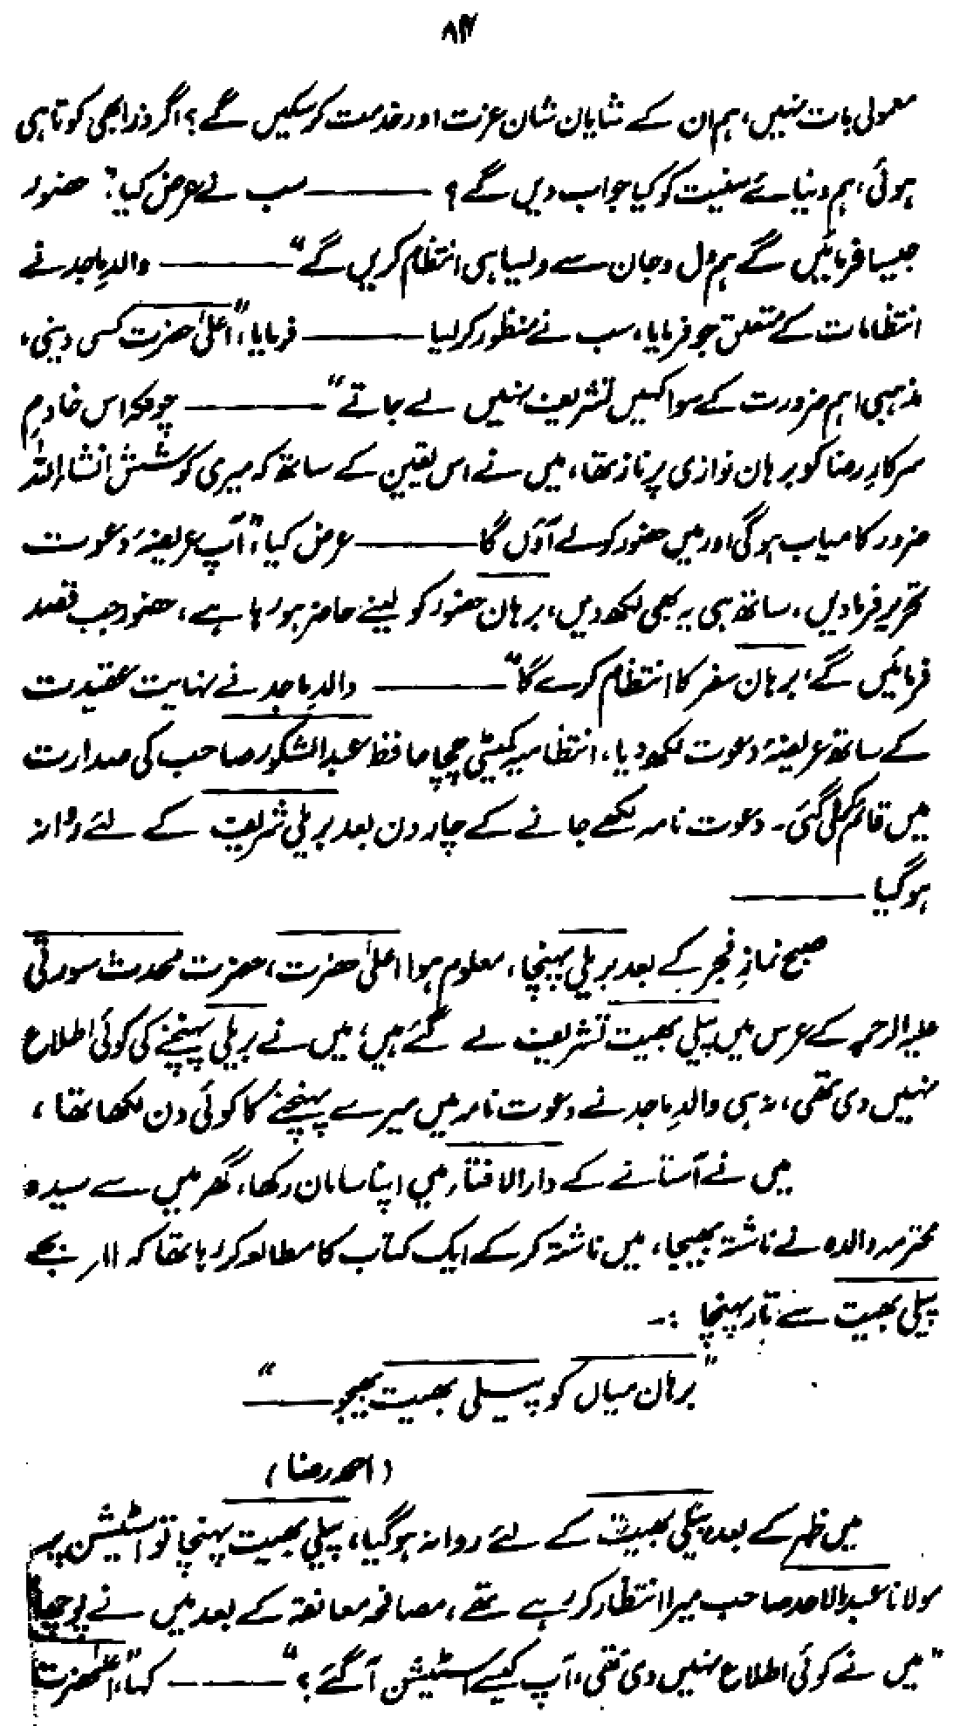 معمولی بات نہیں، ہم ان کے شایان شان عزت اور خدمت کرسکیں گے؟ اگر ذرا بھی کوتاہی
ہوئی، ہم دنیائے سنیت کو کیا جواب دیں گے؟ ——— سب نے عرض کیا: "حضور
جیسا فرمائیں گے ہم دل وجان سے ویسا ہی انتظام کریں گے" ——— والدِ ماجد نے
انتظامات کے متعلق جو فرمایا، سب نے منظور کرلیا ——— فرمایا، "اعلیٰ حضرت کسی دینی،
مذہبی اہم ضرورت کے سوا کہیں تشریف نہیں لے جاتے" ——— چونکہ اس خادمِ
سرکارِ رضا کو برہان نوازی پر ناز تھا، میں نے اس یقین کے ساتھ کہ میری کوشش انشاءاللہ
ضرور کامیاب ہوگی اور میں حضور کو لے آؤں گا ——— عرض کیا، "آپ عریضۂ دعوت
تحریر فرمادیں، ساتھ ہی یہ بھی لکھ دیں، برہان حضور کو لینے حاضر ہورہا ہے، حضور جب قصد
فرمائیں گے، برہان سفر کا انتظام کرے گا" ——— والدِ ماجد نے نہایت عقیدت
کے ساتھ عریضۂ دعوت لکھ دیا، انتظامیہ کمیٹی چچا حافظ عبدالشکور صاحب کی صدارت
میں قائم کی گئی۔ دعوت نامہ لکھے جانے کے چار دن بعد بریلی شریف کے لئے روانہ
ہوگیا ———
صبح نمازِ فجر کے بعد بریلی پہنچا، معلوم ہوا اعلیٰ حضرت، حضرت محدث سورتی
علیہ الرحمہ کے عرس میں پیلی بھیت تشریف لے گئے ہیں، میں نے بریلی پہنچنے کی کوئی اطلاع
نہیں دی تھی، نہ ہی والدِ ماجد نے دعوت نامہ میں میرے پہنچنے کا کوئی دن لکھا تھا،
میں نے آستانے کے دارالافتاء میں اپنا سامان رکھا، گھر میں سے سیدہ
محترمہ والدہ نے ناشتہ بھیجا، میں ناشتہ کرکے ایک کتاب کا مطالعہ کررہا تھا کہ ۱۱ بجے
پیلی بھیت سے تار پہنچا :۔
"برہان میاں کو پیلی بھیت بھیجو ———"
(احمد رضا)
میں ظہر کے بعد پیلی بھیت کے لئے روانہ ہوگیا، پیلی بھیت پہنچا تو اسٹیشن پر
مولانا عبدالاحد صاحب میرا انتظار کررہے تھے، مصافحہ معانقہ کے بعد میں نے پوچھا
"میں نے کوئی اطلاع نہیں دی تھی، آپ کیسے اسٹیشن آگئے؟" ——— کہا، "اعلیٰحضرت